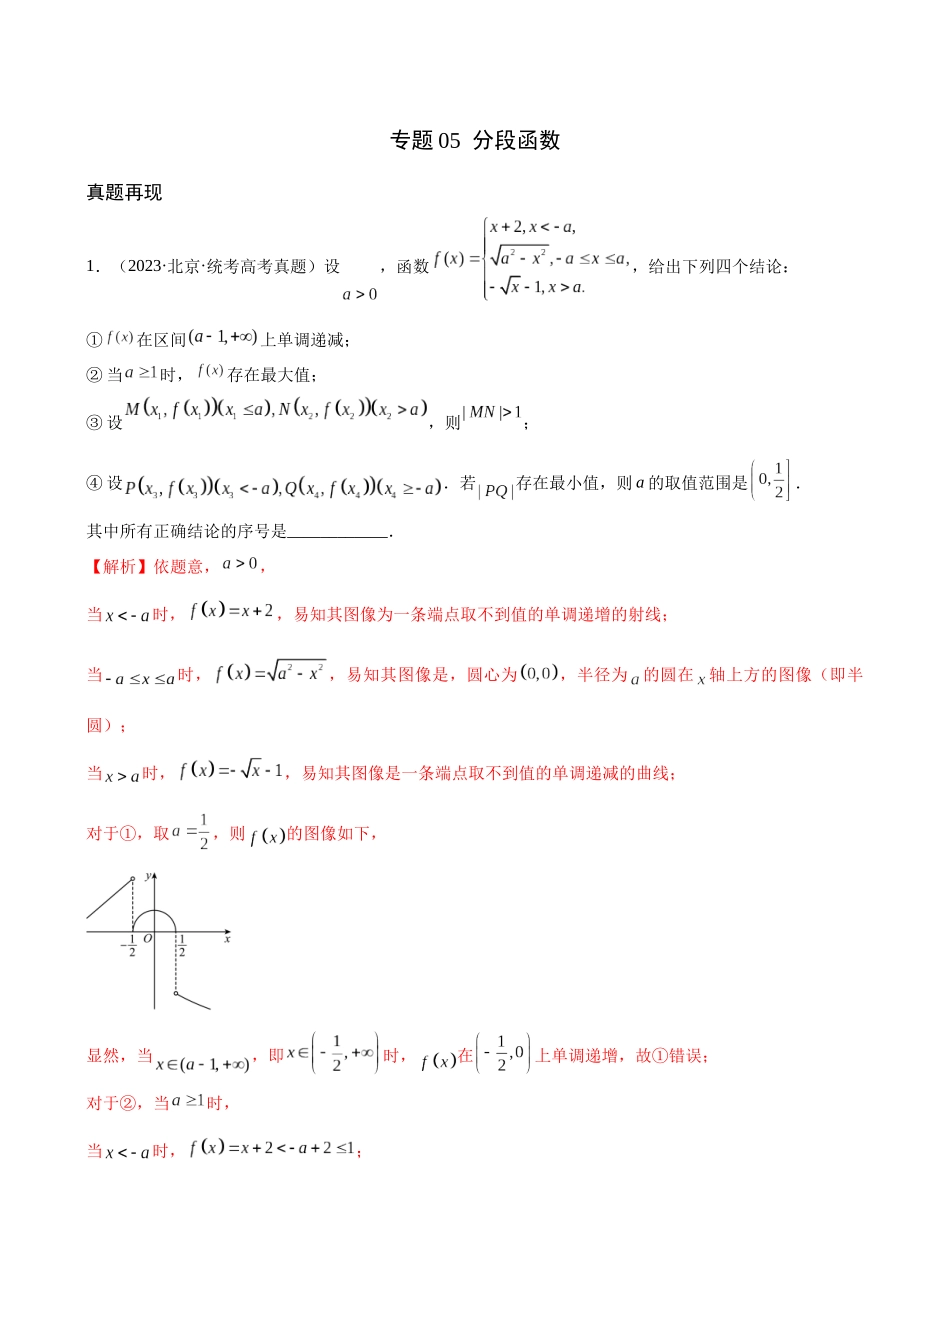 专题 05 分段函数
真题再现
1．（2023·北京·统考高考真题）设 a>0，函数 f(x)={x+2, x<-a, √(a²-x²), -a≤x≤a, -√x-1, x>a. ，给出下列四个结论：
① f(x) 在区间 (a-1,+∞) 上单调递减；
② 当 a≥1 时，f(x) 存在最大值；
③ 设 M(x₁,f(x₁))(x₁≤a),N(x₂,f(x₂))(x₂>a)，则 |MN|>1；
④ 设 P(x₃,f(x₃))(x₃<-a),Q(x₄,f(x₄))(x₄≥-a)．若 |PQ| 存在最小值，则 a 的取值范围是 (0,1/2]．
其中所有正确结论的序号是____________．
【解析】依题意，a>0，
当 x<-a 时，f(x)=x+2，易知其图像为一条端点取不到值的单调递增的射线；
当 -a≤x≤a 时，f(x)=√(a²-x²)，易知其图像是，圆心为 (0,0)，半径为 a 的圆在 x 轴上方的图像（即半
圆）；
当 x>a 时，f(x)=-√x-1，易知其图像是一条端点取不到值的单调递减的曲线；
对于①，取 a=1/2，则 f(x) 的图像如下，
y
-1/2 O 1/2 x
显然，当 x∈(a-1,+∞)，即 x∈(-1/2,+∞) 时，f(x) 在 (-1/2,0) 上单调递增，故①错误；
对于②，当 a≥1 时，
当 x<-a 时，f(x)=x+2<-a+2≤1；